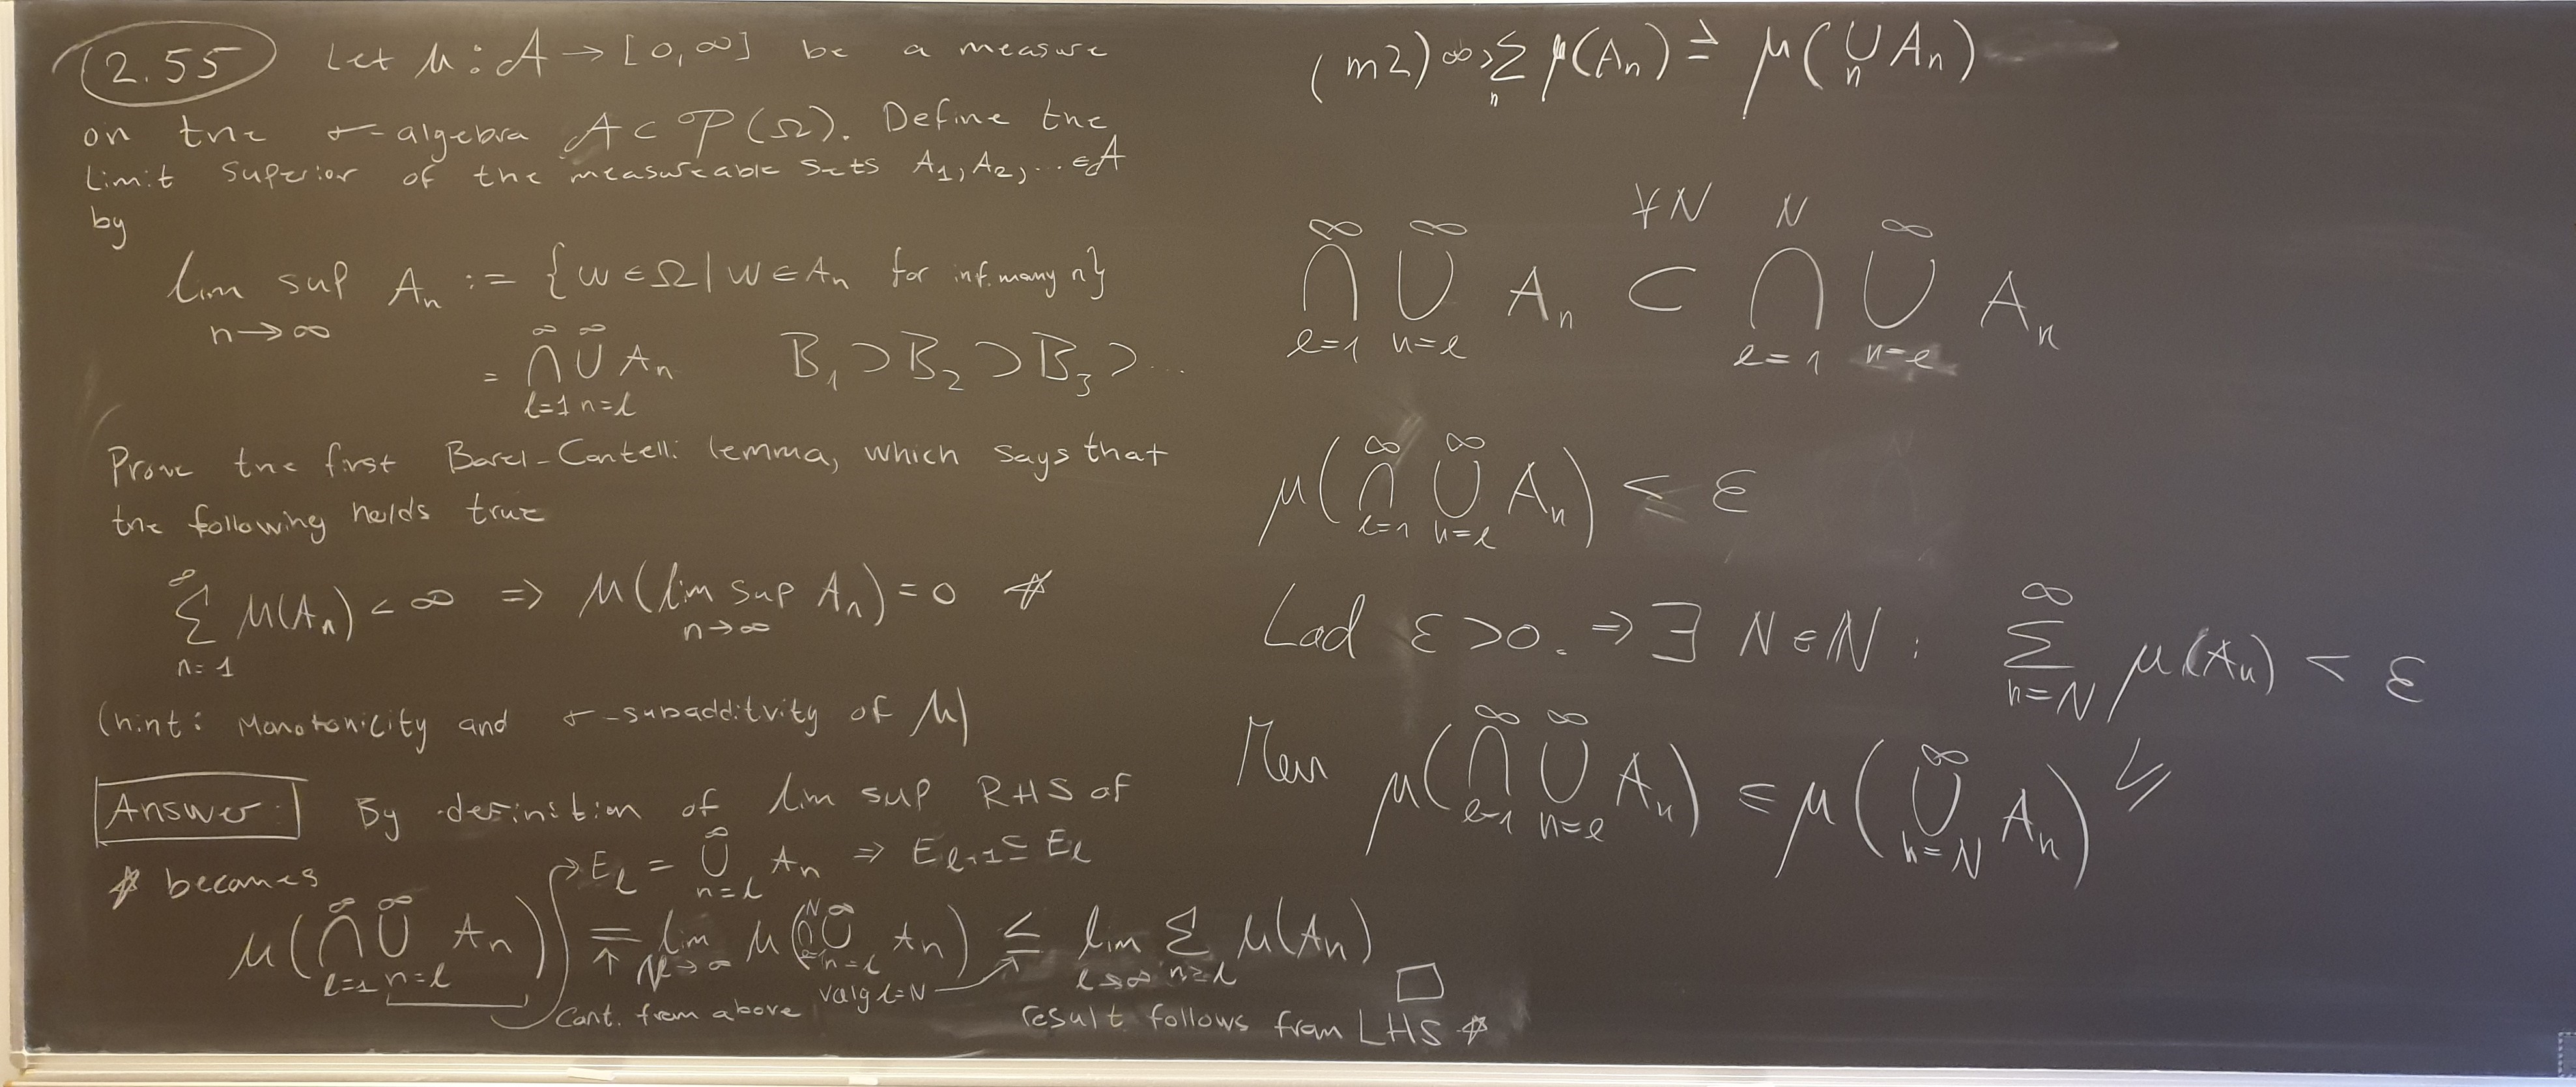 2.55 Let μ: A → [0,∞] be a measure
on the σ-algebra A ⊂ P(Ω). Define the
Limit Superior of the measureable sets A₁, A₂, ... ∈ A
by
lim sup_{n→∞} A_n := {w ∈ Ω | w ∈ A_n for inf. many n}
= ⋂_{l=1}^∞ ⋃_{n=l}^∞ A_n B₁ ⊃ B₂ ⊃ B₃ ⊃ ...
Prove the first Borel-Cantelli lemma, which says that
the following holds true
∑_{n=1}^∞ μ(A_n) < ∞ ⇒ μ(lim sup_{n→∞} A_n) = 0 *
(hint: Monotonicity and σ-subadditvity of μ)
Answer: By definition of lim sup RHS of
* becomes E_l = ⋃_{n=l}^∞ A_n ⇒ E_{l+1} ⊆ E_l
μ(⋂_{l=1}^∞ ⋃_{n=l}^∞ A_n) = lim_{N→∞} μ(⋂_{l=1}^N ⋃_{n=l}^∞ A_n) ≤ lim_{l→∞} ∑_{n≥l} μ(A_n)
Cont. from above vælg l=N □
result follows from LHS *
(m2) ∞ > ∑_n μ(A_n) ≥ μ(⋃_n A_n)
∀N
⋂_{l=1}^∞ ⋃_{n=l}^∞ A_n ⊂ ⋂_{l=1}^N ⋃_{n=l}^∞ A_n
μ(⋂_{l=1}^∞ ⋃_{n=l}^∞ A_n) < ε
Lad ε > 0. ⇒ ∃ N ∈ ℕ : ∑_{n=N}^∞ μ(A_n) < ε
Men μ(⋂_{l=1}^∞ ⋃_{n=l}^∞ A_n) ≤ μ(⋃_{n=N}^∞ A_n) ≤